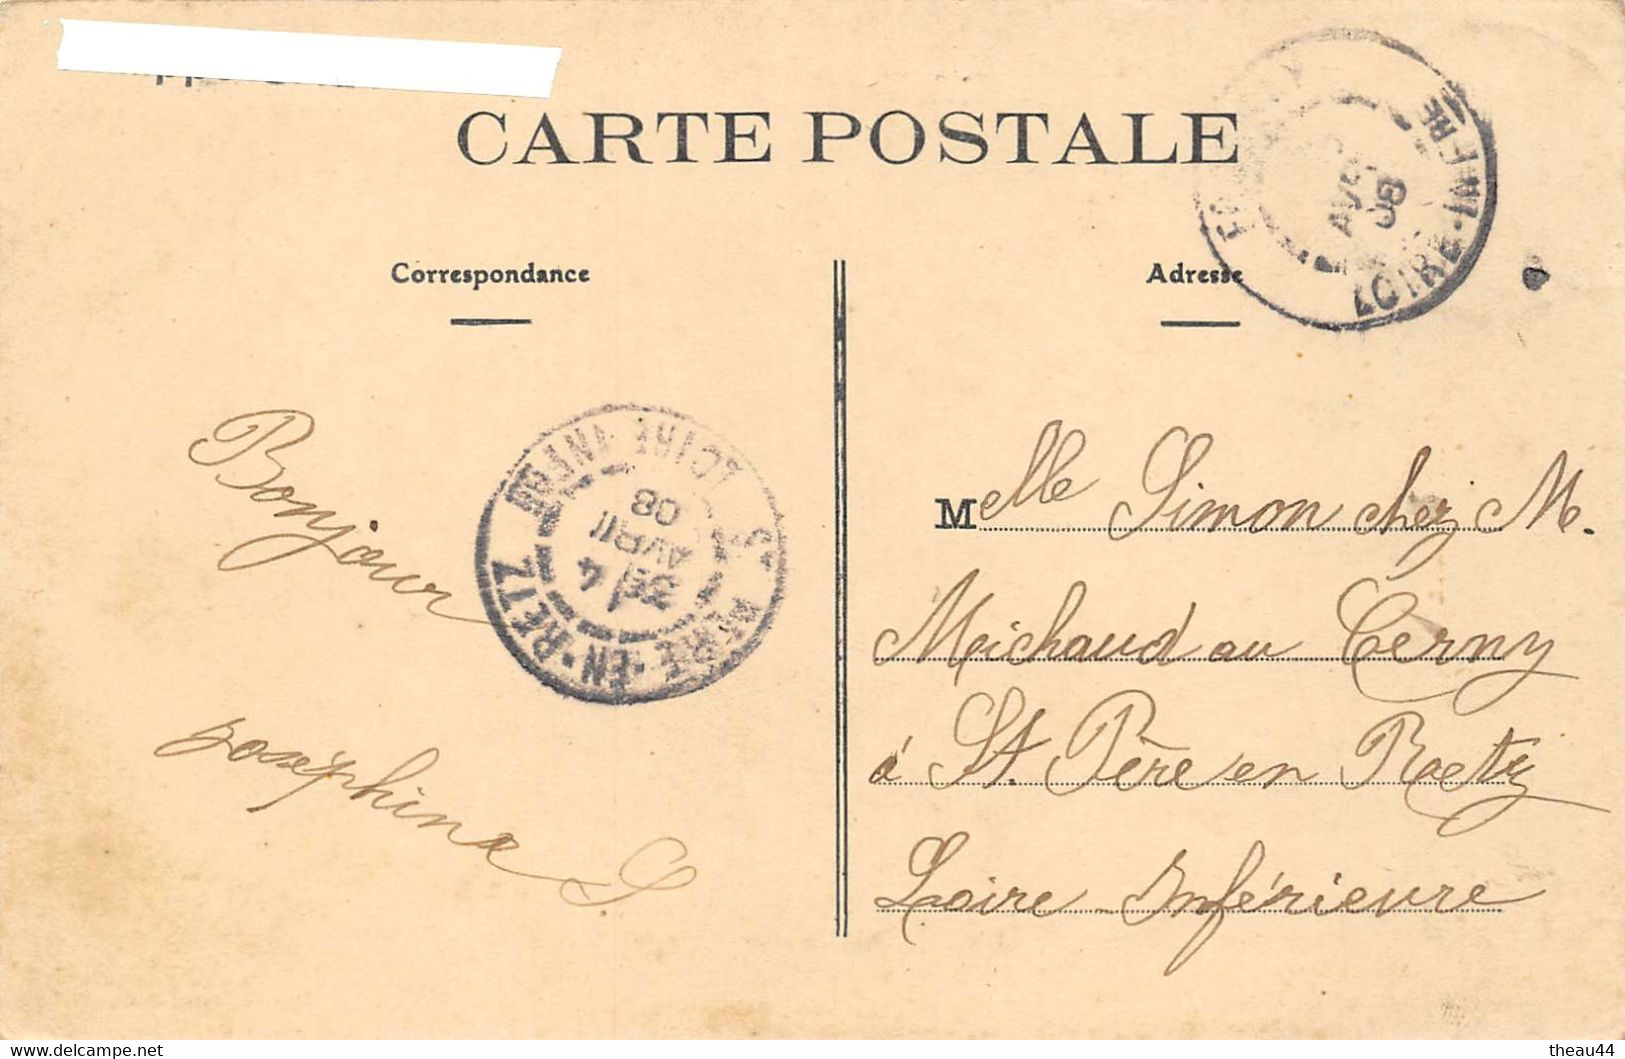 CARTE POSTALE
Correspondance
Adresse
LOIRE-INFRE
AVRIL
08
ST PERE-EN-RETZ
LOIRE INFRE
4
AVRIL
08
Bonjour
Josephine S.
Melle Simon chez M.
Meichaud au Cerny
à St. Père en Raetz
Loire Inférieure
theau44